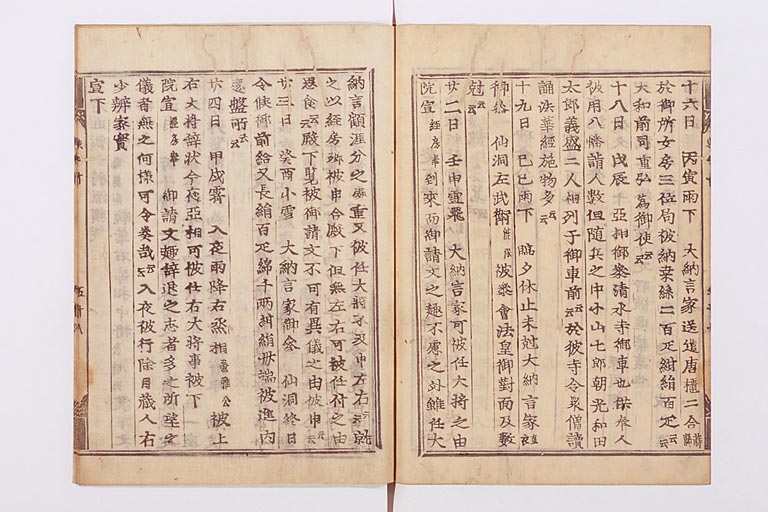 十六日　丙寅雨下　大納言家送遣唐櫃二合
於御所女房三位局被納桒絲二百疋紺絹百疋云云
大和前司重弘為御使云云
十八日戊辰　亞相御參清水寺御車也供奉人
被用八幡請人数但随兵之中小山七郎朝光和田
太郎義盛二人相列于御車前云云於彼寺令衆僧讀
誦法華經施物多云云
十九日　己巳雨下　臨夕休止未尅大納言家直衣
御參　仙洞左武衛能保被參會法皇御對面及数
尅云云
廿二日　壬申霽　大納言家可被任大將之由
院宣經房奉到來而御請文之趣不慮之外雖任大
納言顧涯分之處重又被任大將
之以經房卿被申合殿下但無左右可被任付之由
思食云云殿下覧彼御請文不可有異儀之由被申云云
廿三日　癸酉小雪　大納言家御參　仙洞終日
令候御前給又長絹百疋綿千両紺絹卅端被進内
臺盤所云云
廿四日　甲戌霽　入夜雨降右丞相被上
右大將辞状今夜亞相可被任右大將事被下
院宣經房奉　御請文趣辞退之志者多之所望之
儀者無之何様可令奏哉云云入夜被行除目蔵人右
少辨家實
宣下